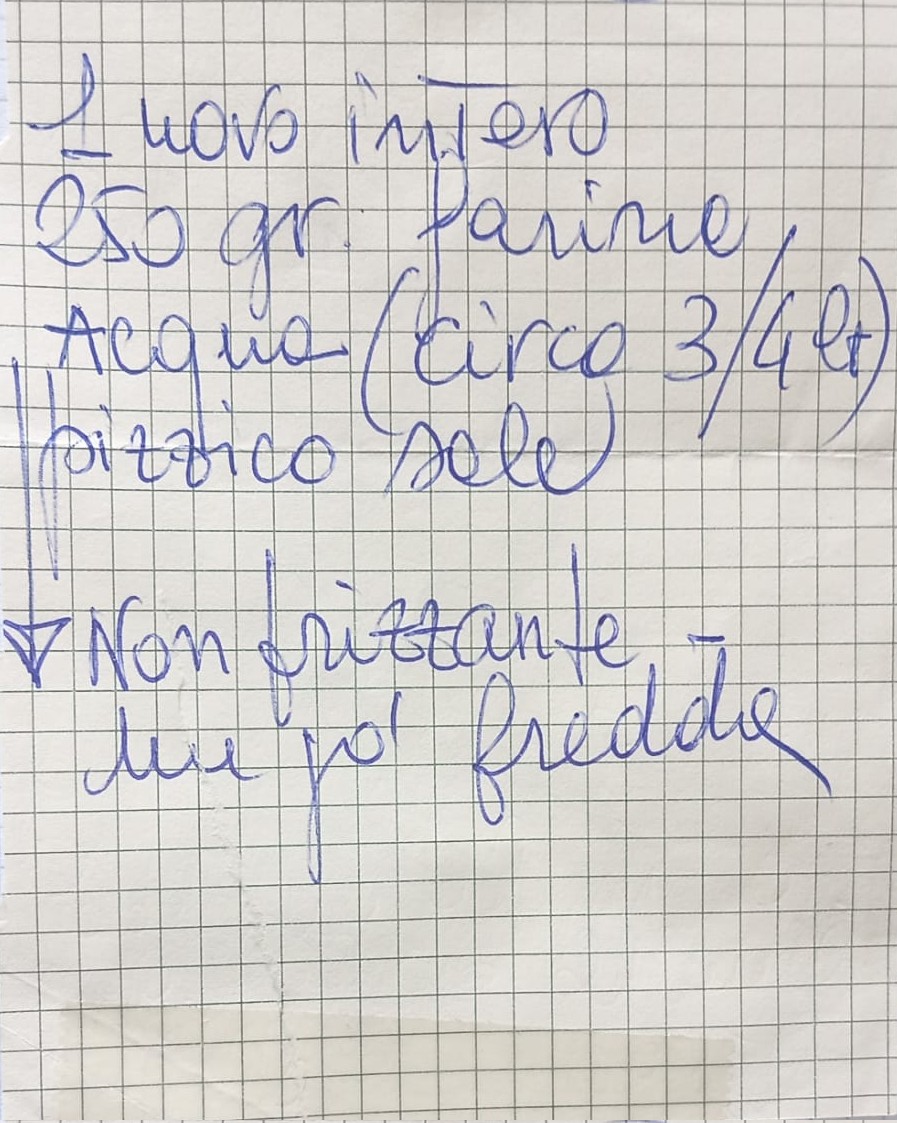 1 uovo intero
250 gr. farina
Acqua (circa 3/4 lt)
pizzico sale
Non frizzante -
un po' fredda